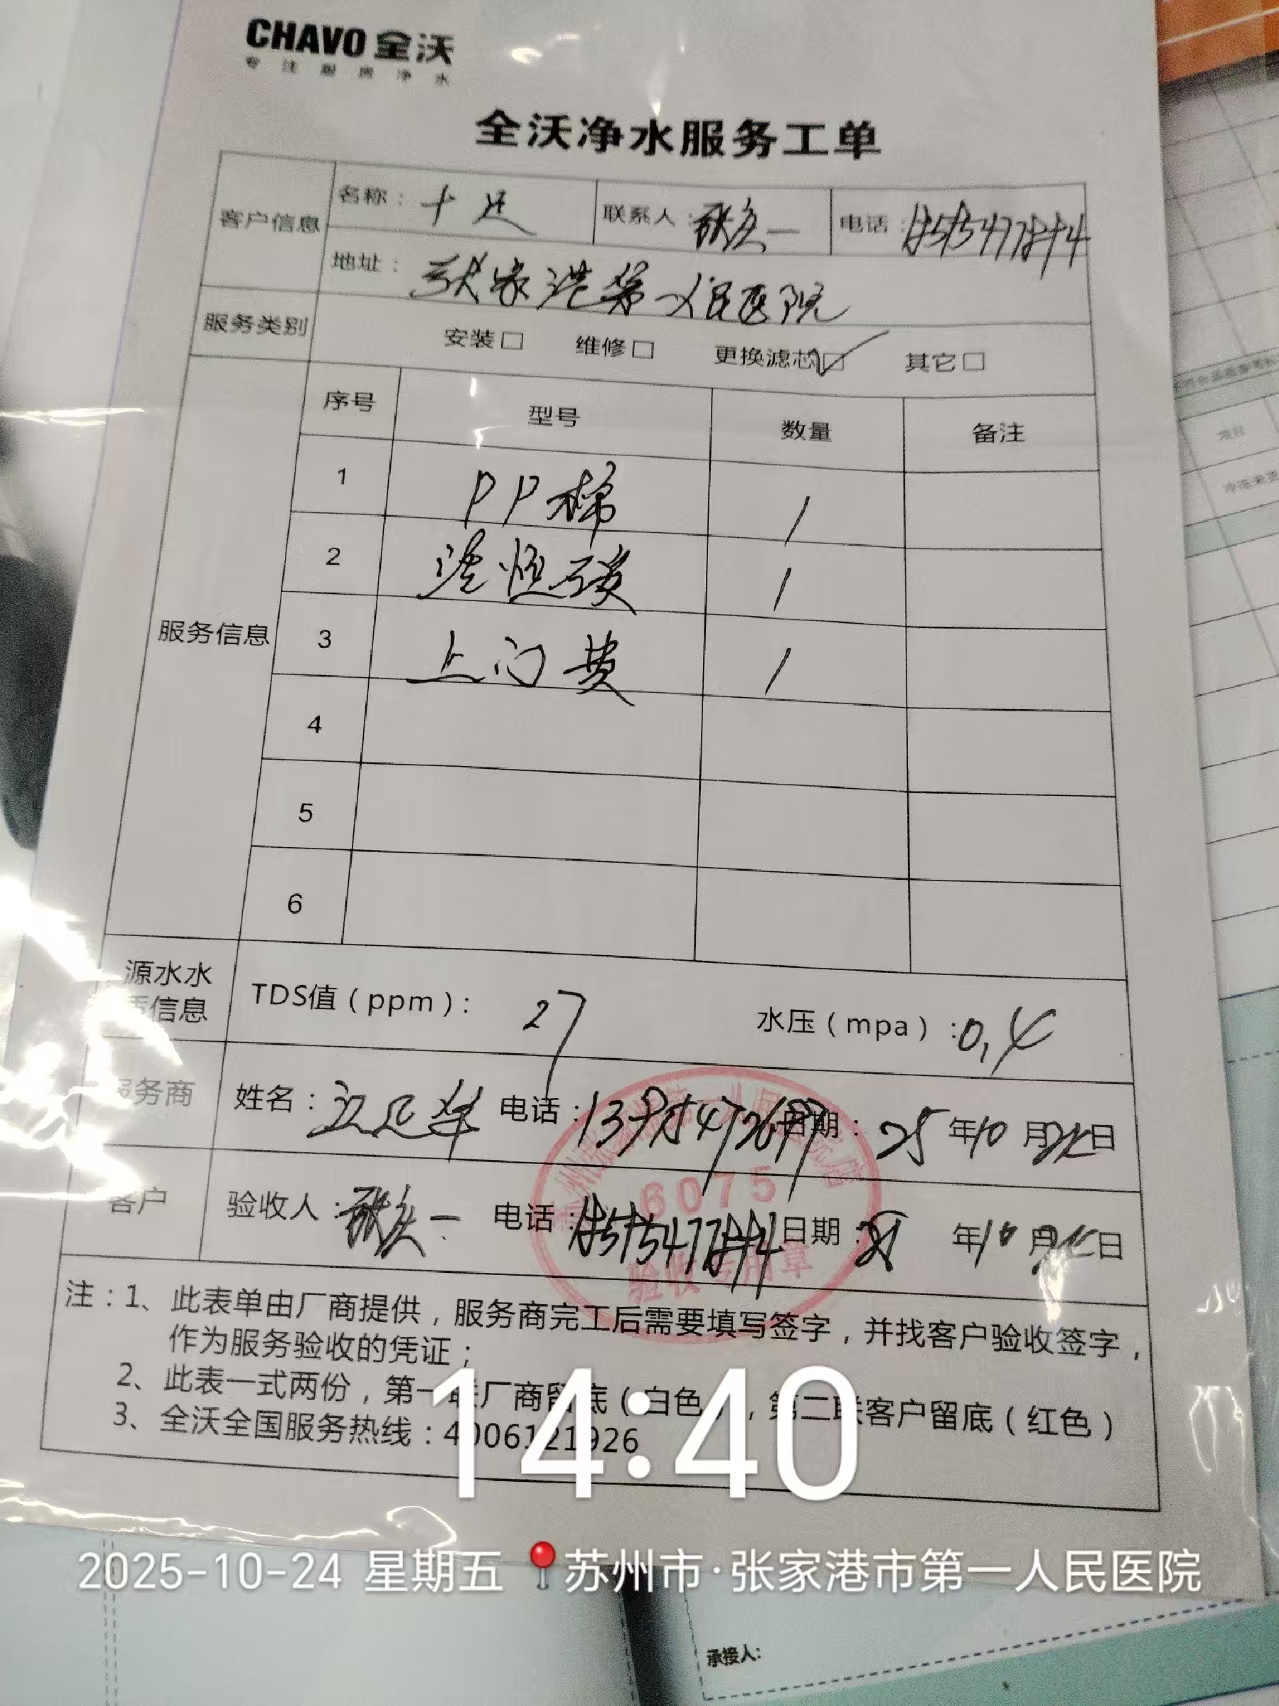 CHAVO 全沃
专注厨房净水
全沃净水服务工单
客户信息 名称：十足 联系人： 电话：
地址：张家港第一人民医院
服务类别 安装□ 维修□ 更换滤芯☑ 其它□
服务信息 序号 型号 数量 备注
1 PP棉 1
2 1
3 上门费 1
4
5
6
源水水质信息 TDS值（ppm）：27 水压（mpa）：0.4
服务商 姓名： 电话： 日期：25年10月 日
客户 验收人： 电话： 日期： 年10月 日
6075
验收专用章
注：1、此表单由厂商提供，服务商完工后需要填写签字，并找客户验收签字，
作为服务验收的凭证；
2、此表一式两份，第一联厂商留底（白色），第二联客户留底（红色）
3、全沃全国服务热线：4006121926
14:40
2025-10-24 星期五 苏州市·张家港市第一人民医院
承接人: